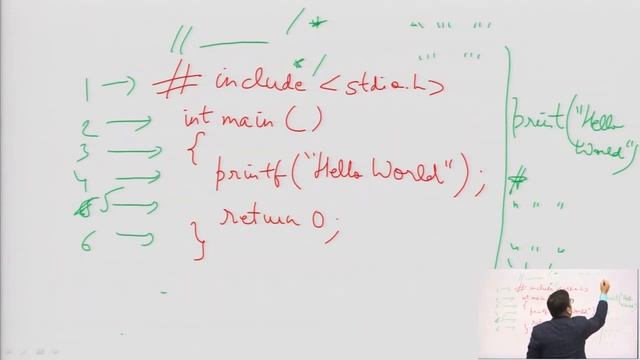 // /* """ """
*/ """ """
1 → # include <stdio.h>
2 → int main ()
3 → {
4 → printf("Hello World");
5 → return 0;
6 → }
print("Hello
World")
#
" " "
" " "